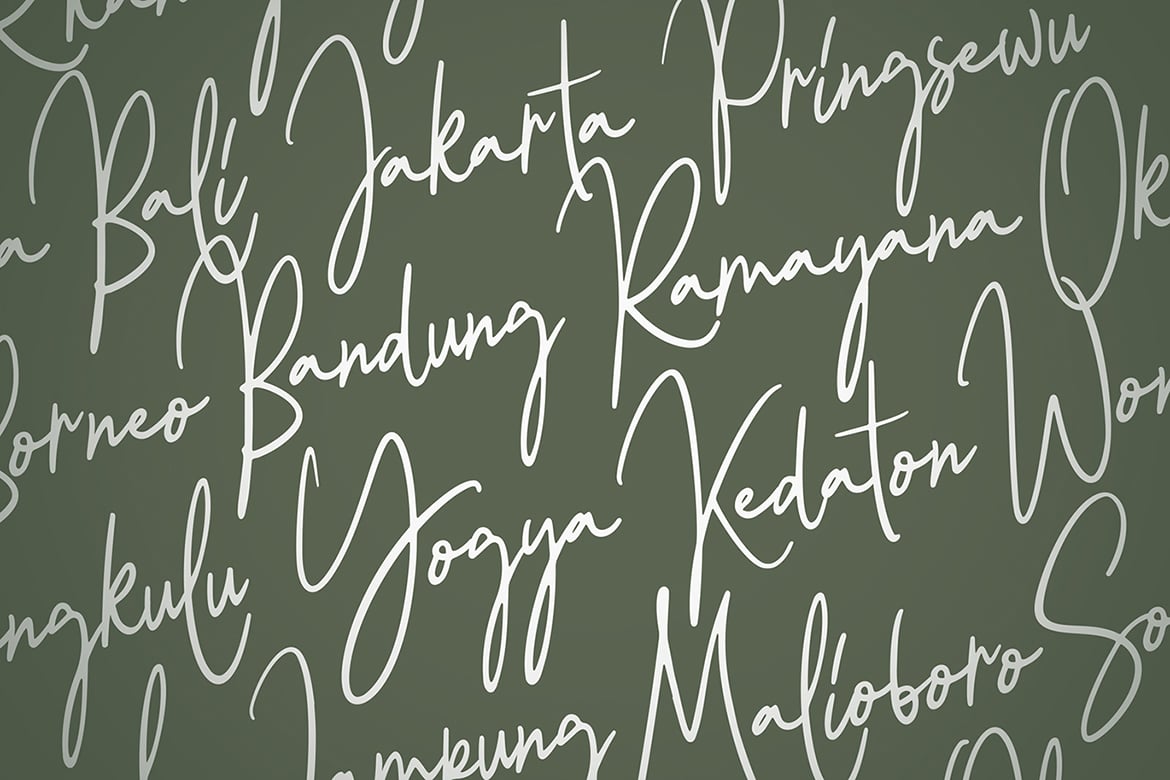 Bali Jakarta Pringsewu
Borneo Bandung Ramayana
ngkulu Yogya Kedaton Won
Malioboro So